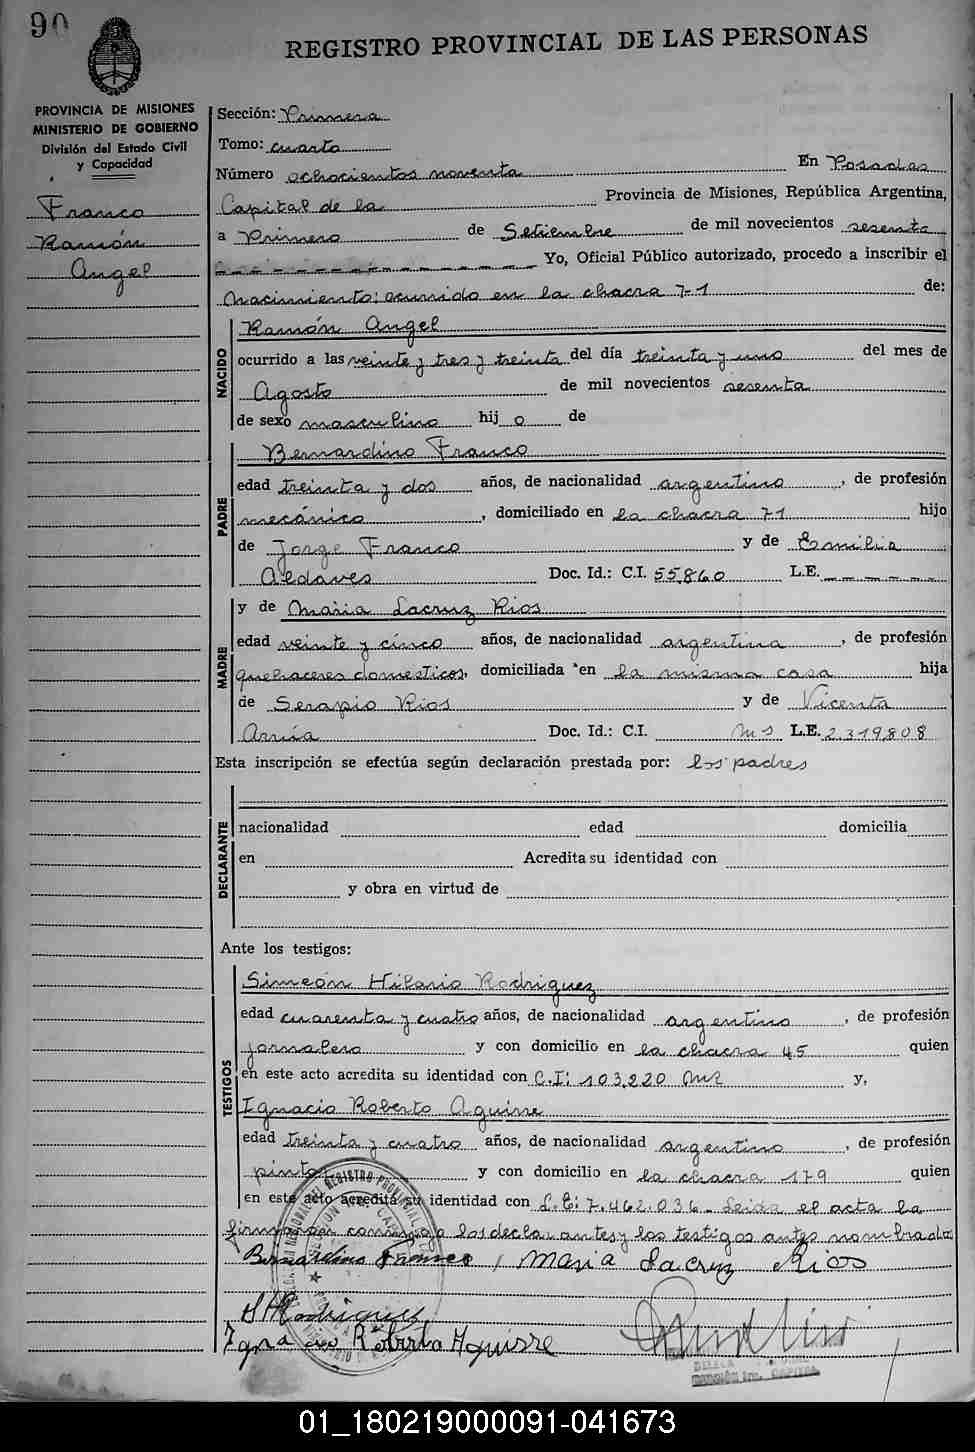 90
REGISTRO PROVINCIAL DE LAS PERSONAS
PROVINCIA DE MISIONES
MINISTERIO DE GOBIERNO
División del Estado Civil
y Capacidad
Franco
Ramón
Angel
Sección: Primera
Tomo: cuarto
Número ochocientos noventa En Posadas
Capital de la Provincia de Misiones, República Argentina,
a Primero de Setiembre de mil novecientos sesenta
Yo, Oficial Público autorizado, procedo a inscribir el
Nacimiento: ocurrido en la chacra 71 de:
NACIDO
Ramón Angel
ocurrido a las veinte y tres y treinta del día treinta y uno del mes de
Agosto de mil novecientos sesenta
de sexo masculino hijo de
PADRE
Bernardino Franco
edad treinta y dos años, de nacionalidad argentino, de profesión
mecánico, domiciliado en la chacra 71 hijo
de Jorge Franco y de Emilia
Aldaves Doc. Id.: C.I. 55860 L.E. – – – – – –
MADRE
y de Maria Lacruz Rios
edad veinte y cinco años, de nacionalidad argentina, de profesión
quehaceres domesticos, domiciliada en la misma casa hija
de Serapio Rios y de Vicenta
Doc. Id.: C.I. Ms L.E. 2.319.808
Esta inscripción se efectúa según declaración prestada por: los padres
DECLARANTE
nacionalidad edad domicilia
en Acredita su identidad con
y obra en virtud de
Ante los testigos:
TESTIGOS
Simeón Hilario Rodriguez
edad cuarenta y cuatro años, de nacionalidad argentino, de profesión
jornalero y con domicilio en la chacra 45 quien
en este acto acredita su identidad con C.I: 103.220 y,
Ignacio Roberto Aguirre
edad treinta y cuatro años, de nacionalidad argentino, de profesión
pintor y con domicilio en la chacra 179 quien
en este acto acredita su identidad con L.E: 7.462.036. Leida el acta la
firman por conmigo los declarantes y los testigos antes nombrados
Bernardino Franco, Maria Lacruz Rios
H Rodriguez
Ignacio Roberto Aguirre
SECCIÓN 1ra. CAPITAL
01_180219000091-041673